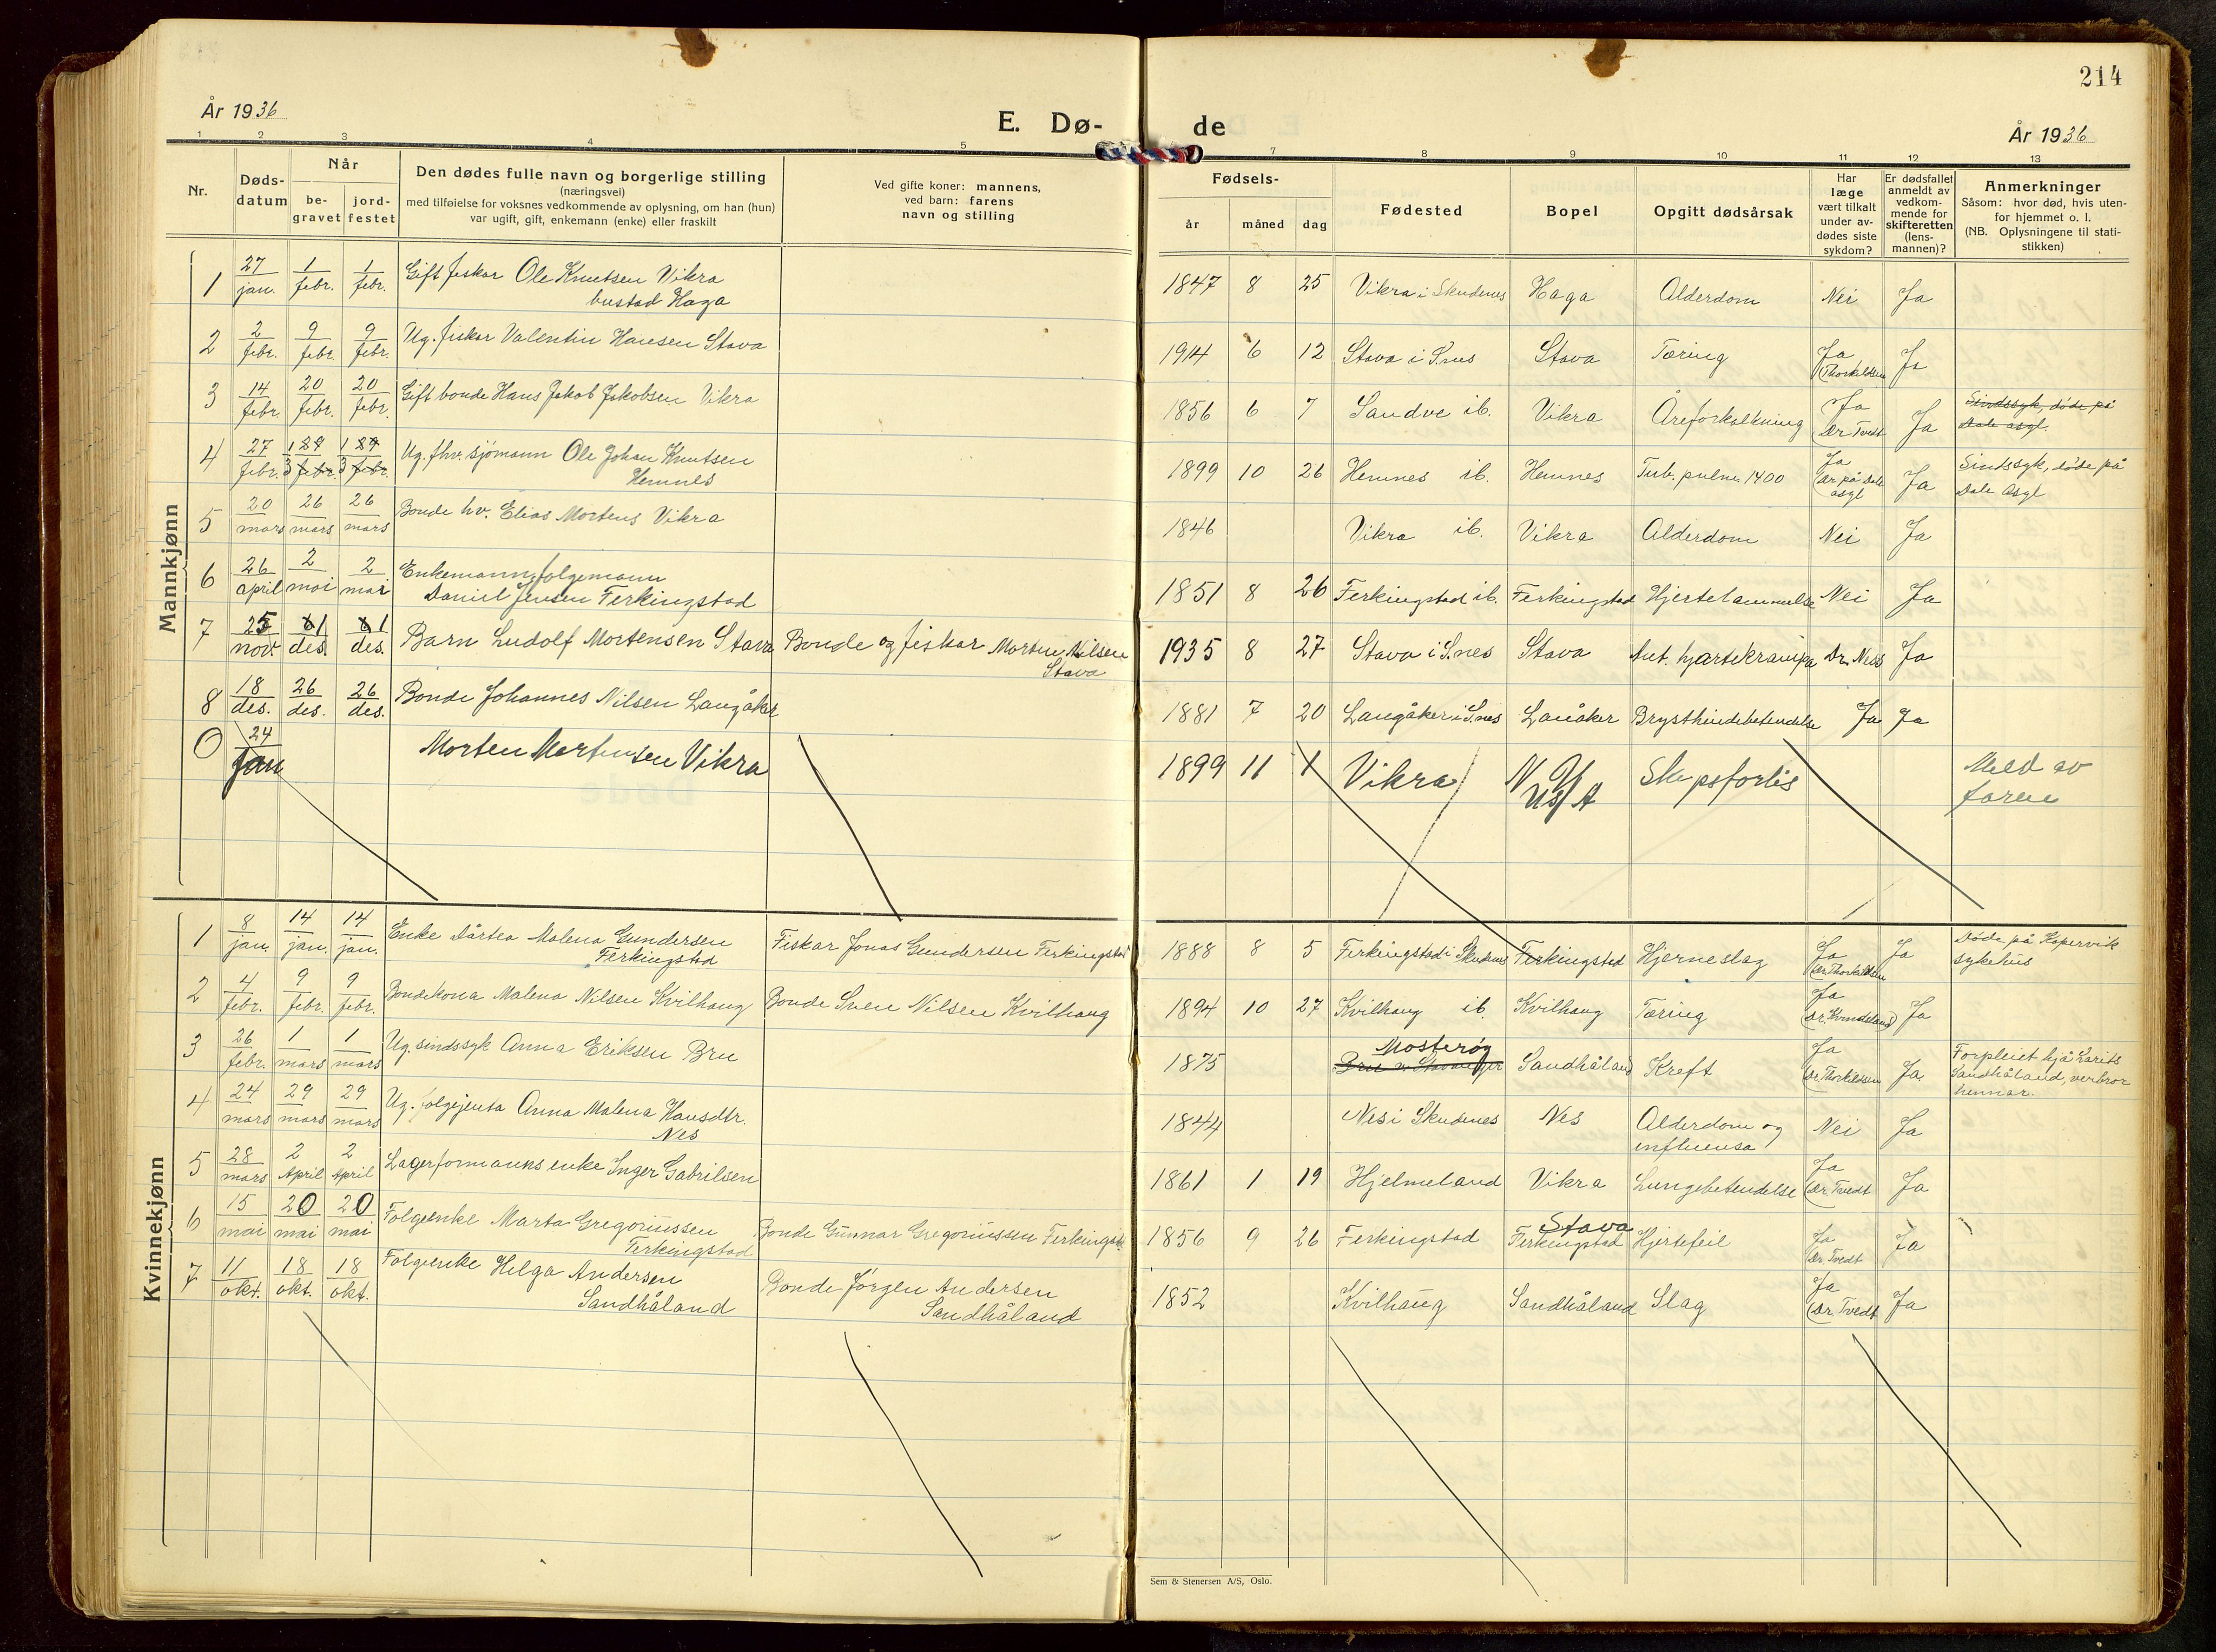 214
År 1936
E. Dø-
de
År 1936
1 2 3 4 5 7 8 9 10 11 12 13
Nr.
Døds-
datum
Når
be-
gravet
jord-
festet
Den dødes fulle navn og borgerlige stilling
(næringsvei)
med tilføielse for voksnes vedkommende av oplysning, om han (hun)
var ugift, gift, enkemann (enke) eller fraskilt
Ved gifte koner: mannens,
ved barn: farens
navn og stilling
Fødsels-
år måned dag
Fødested
Bopel
Opgitt dødsårsak
Har
læge
vært tilkalt
under av-
dødes siste
sykdom?
Er dødsfallet
anmeldt av
vedkom-
mende for
skifteretten
(lens-
mannen)?
Anmerkninger
Såsom: hvor død, hvis uten-
for hjemmet o. l.
(NB. Oplysningene til stati-
stikken)
Mannkjønn
1 27 jan. 1 febr. 1 febr. Gift fiskar Ole Knutsen Vikra 1847 8 25 Vikra i Skudenes Haga Alderdom Nei Ja
bustad Haga
2 2 febr. 9 febr. 9 febr. Ug. fiskar Valentin Hansen Stava 1914 6 12 Stava i S.nes Stava Tæring Ja (Thorkildsen Ja
3 14 febr 20 febr. 20 febr. Gift bonde Hans Jakob Jakobsen Vikra 1856 6 7 Sandve ib. Vikra Åreforkalkning Ja (Dr Tvedt Ja Sindssyk, døde på
Dale asyl.
4 27 febr. 1 3 febr. 1 3 febr. Ug. fhv. sjømann Ole Johan Knutsen 1899 10 26 Hemnes ib. Hemnes Tub. pulm. 1400 Ja (Dr på Dale asyl Ja Sindssyk, døde på
Hemnes Dale Asyl
5 20 mars 26 mars 26 mars Bonde hv. Elias Mortens Vikra 1846 Vikra ib. Vikra Alderdom Nei Ja
6 26 april 2 mai 2 mai Enkemann, folgemann 1851 8 26 Ferkingstad ib. Ferkingstad Hjertelammelse Nei Ja
Daniel Jensen Ferkingstad
7 25 nov. 1 des. 1 des. Barn Ludolf Mortensen Stava Bonde og fiskar Morten Nilsen 1935 8 27 Stava i S.nes Stava Aut. hjartekrampa Dr. Ness Ja
Stava
8 18 des. 26 des. 26 des. Bonde Johannes Nilsen Langåker 1881 7 20 Langåker i S.nes Lanåker Brysthindebetendelse Ja Ja
0 24 Jan Morten Mortensen Vikra 1899 11 1 Vikra N. Y. Skipsforlis Meld av
USA faren
Kvinnekjønn
1 8 jan. 14 jan. 14 jan. Enke Dårtea Malena Gundersen Fiskar Jonas Gundersen Ferkingstad 1888 8 5 Ferkingstad i Skudenes Ferkingstad Hjerneslag Ja (Dr Thorkildsen Ja Døde på Kopervik
Ferkingstad sykehus
2 4 febr. 9 febr. 9 febr. Bondekona Malena Nilsen Kvilhaug Bonde Sven Nilsen Kvilhaug 1894 10 27 Kvilhaug ib. Kvilhaug Tæring Ja (Dr. Kvindeland) Ja
3 26 febr. 1 mars 1 mars Ug. sindssyk Anna Eriksen Bru 1875 Mosterøy Sandhåland Kreft Ja (Dr Thorkildsen Ja. Forpleiet hjå Larits
Bru v Stavanger Sandhåland, verbror
hennar.
4 24 mars 29 mars 29 mars Ug. folgejenta Anna Malena Hansdtr. 1844 Nes i Skudenes Nes Alderdom og Nei Ja
Nes influensa
5 28 mars 2 April 2 April Lagerformanns enke Inger Gabrilsen 1861 1 19 Hjelmeland Vikra Lungebetendelse Ja (Dr. Tvedt Ja
6 15 mai 20 mai 20 mai Folgeenke Marta Gregoriussen Bonde Gunnar Gregoriussen Ferkingstad 1856 9 26 Ferkingstad Stava Hjertefeil Ja (Dr. Tvedt Ja
Ferkingstad Ferkingstad
7 11 okt. 18 okt. 18 okt. Folgeenke Helga Andersen Bonde Jørgen Andersen 1852 Kvilhaug Sandhåland Slag Ja (Dr Tvedt Ja
Sandhåland Sandhåland
Sem & Stenersen A/S, Oslo.